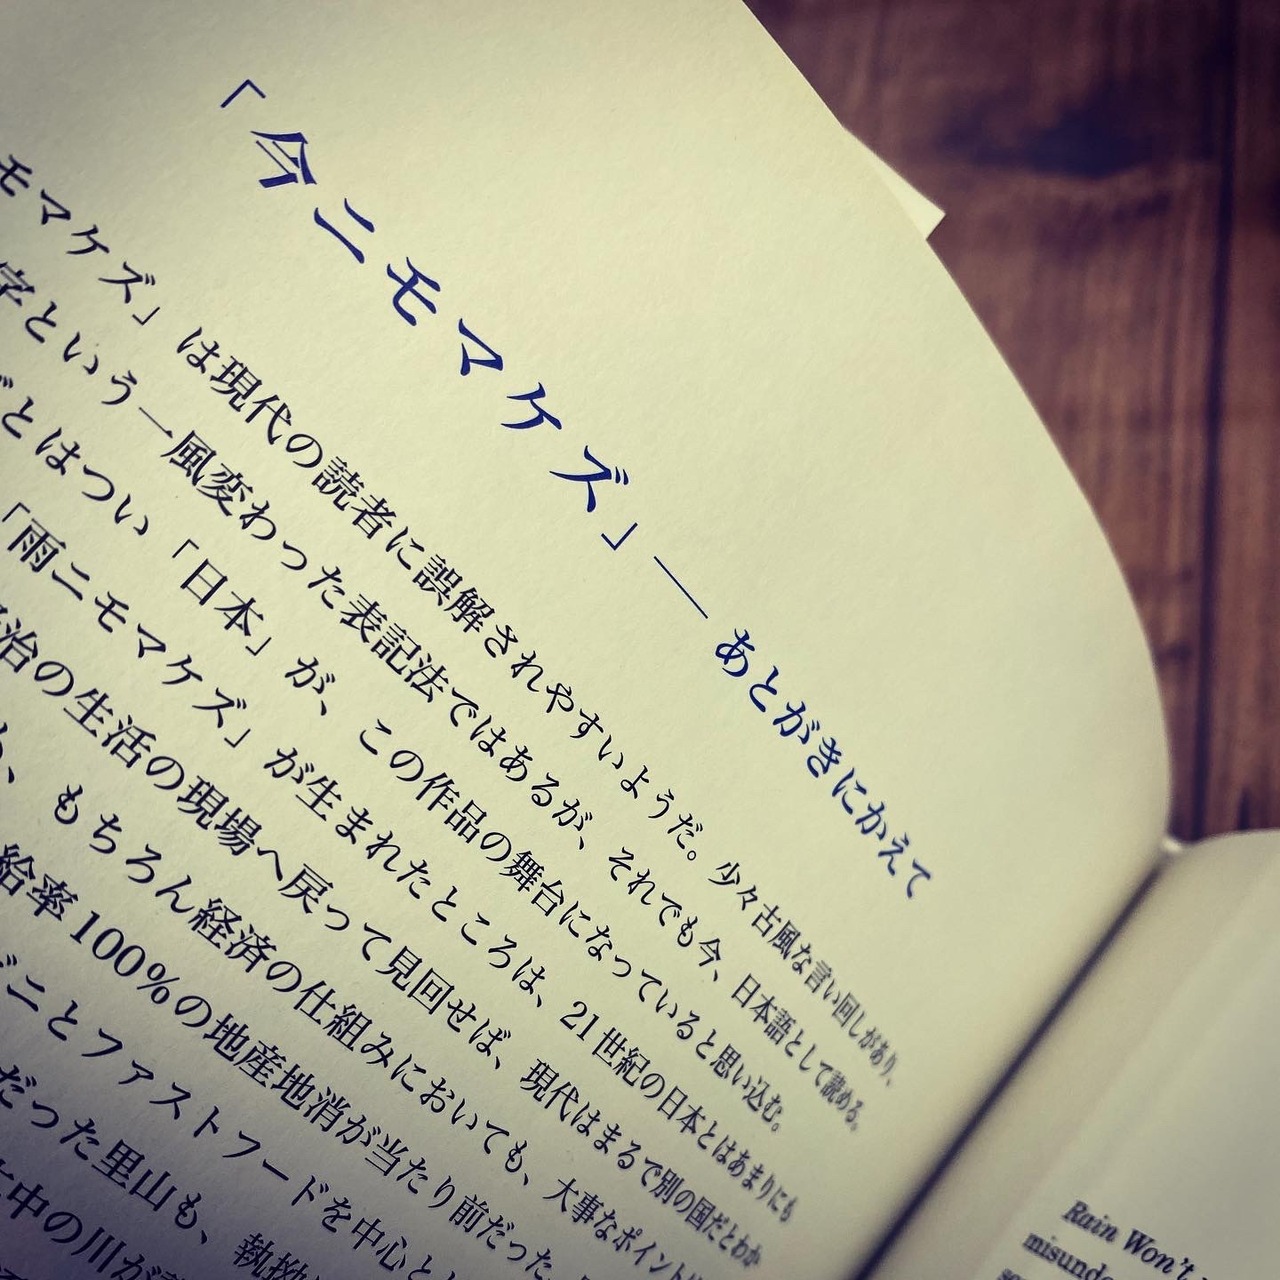 「今ニモマケズ」—あとがきにかえて
モマケズ」は現代の読者に誤解されやすいようだ。少々古風な言い回しがあり、
字という一風変わった表記法ではあるが、それでも今、日本語として読める。
とはつい「日本」が、この作品の舞台になっていると思い込む。
「雨ニモマケズ」が生まれたところは、21世紀の日本とはあまりにも
治の生活の現場へ戻って見回せば、現代はまるで別の国だとわか
、もちろん経済の仕組みにおいても、大事なポイント
給率100%の地産地消が当たり前だった。
ニとファストフードを中心と
だった里山も、執拗
中の川が
Rain Won't
misund